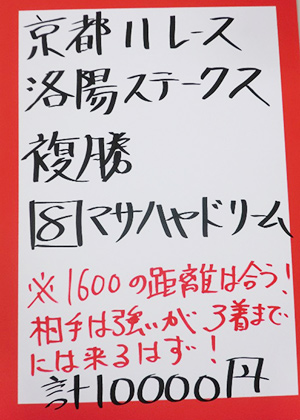 京都11レース
洛陽ステークス
複勝
8マサハヤドリーム
※1600の距離は合う!
相手は強いが3着まで
には来るはず!
計10000円